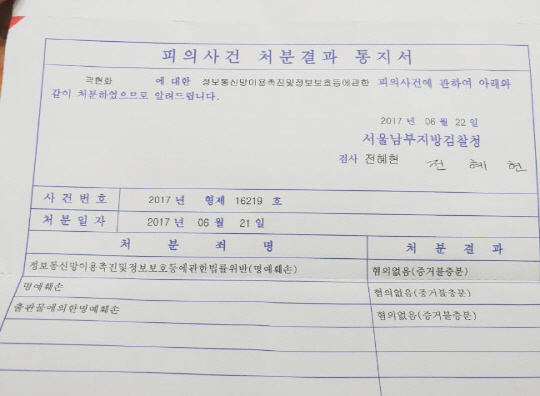 피의사건 처분결과 통지서
곽현화 에 대한 정보통신망이용촉진및정보보호등에관한 피의사건에 관하여 아래와
같이 처분하였으므로 알려드립니다.
2017 년 06 월 22 일
서울남부지방검찰청
검사 전혜현 전 혜 현
사 건 번 호 2017 년 형제 16219 호
처 분 일 자 2017 년 06 월 21 일
처 분 죄 명 처 분 결 과
정보통신망이용촉진및정보보호등에관한법률위반(명예훼손) 혐의없음(증거불충분)
명예훼손 혐의없음(증거불충분)
출판물에의한명예훼손 혐의없음(증거불충분)